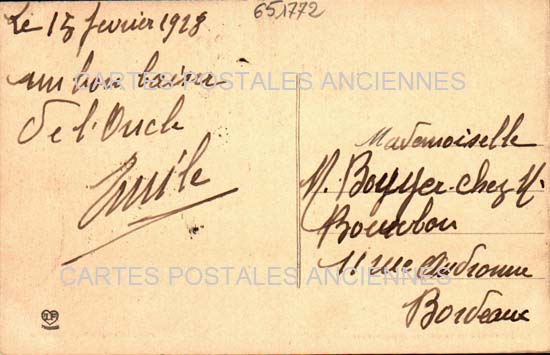 651772
Le 15 fevrier 1928
un bon baiser
de l'Oncle
Emile
CARTES POSTALES ANCIENNES
Mademoiselle
M. Boyyer chez M.
Bourbon
11 rue
Bordeaux
CARTES POSTALES ANCIENNES